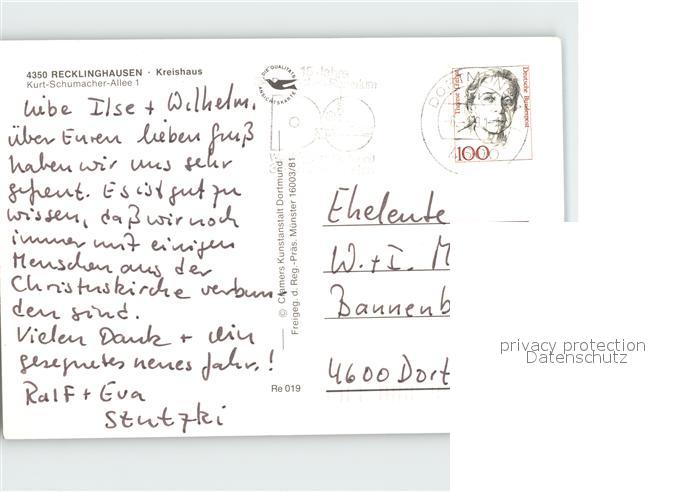 4350 RECKLINGHAUSEN · Kreishaus
Kurt-Schumacher-Allee 1
Liebe Ilse + Wilhelm,
über Euren lieben Gruß
haben wir uns sehr
gefreut. Es ist gut zu
wissen, daß wir noch
immer mit einigen
Menschen aus der
Christuskirche verbun-
den sind.
Vielen Dank + ein
gesegnetes neues Jahr!
Ralf + Eva
Stutzki
DIE QUALITÄTS
ANSICHTSKARTE
© Cramers Kunstanstalt Dortmund
Freigeg. d. Reg.-Präs. Münster 16003/81
Re 019
DORTMUND
Deutsche Bundespost
100
Eheleute
W. + I. M
Bannenb
4600 Dort
privacy protection
Datenschutz